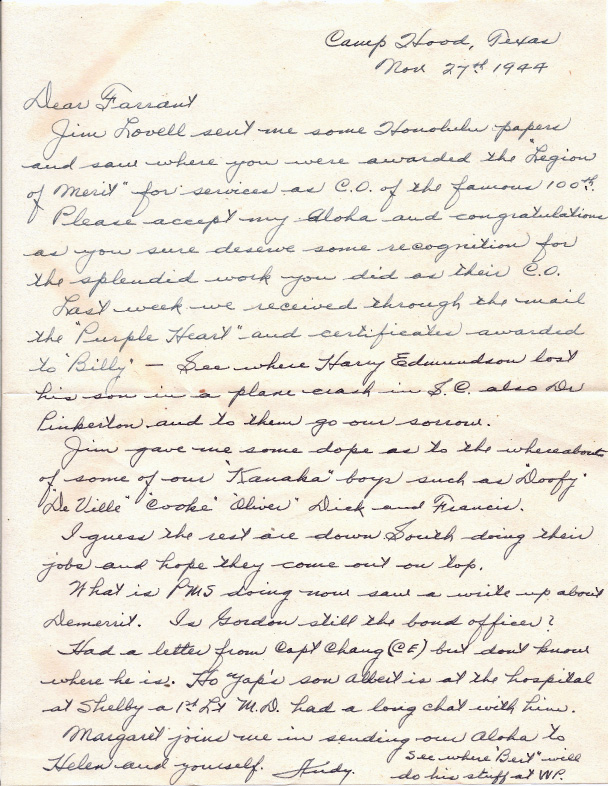 Camp Hood, Texas
Nov 27th 1944
Dear Farrant
Jim Lovell sent me some Honolulu papers
and saw where you were awarded the "Legion
of Merit" for services as C.O. of the famous 100th.
Please accept my Aloha and congratulations
as you sure deserve some recognition for
the splendid work you did as their C.O.
Last week we received through the mail
the "Purple Heart" and certificates awarded
to "Billy" — See where Harry Edmundson lost
his son in a plane crash in S.C. also Dr
Pinkerton and to them go our sorrow.
Jim gave me some dope as to the whereabouts
of some of our "Kanaka" boys such as "Doofy"
"De Ville" "Cooke" "Oliver" Dick and Francis.
I guess the rest are down South doing their
jobs and hope they come out on top.
What is PMS doing now saw a write up about
Demerrit. Is Gordon still the bond officer?
Had a letter from Capt Chang (CE) but don't know
where he is. Ho Yap's son Albert is at the hospital
at Shelby a 1st Lt M.D. had a long chat with him.
Margaret joins me in sending our Aloha to
Helen and yourself. Andy.
See where "Bert" will
do his stuff at WP.